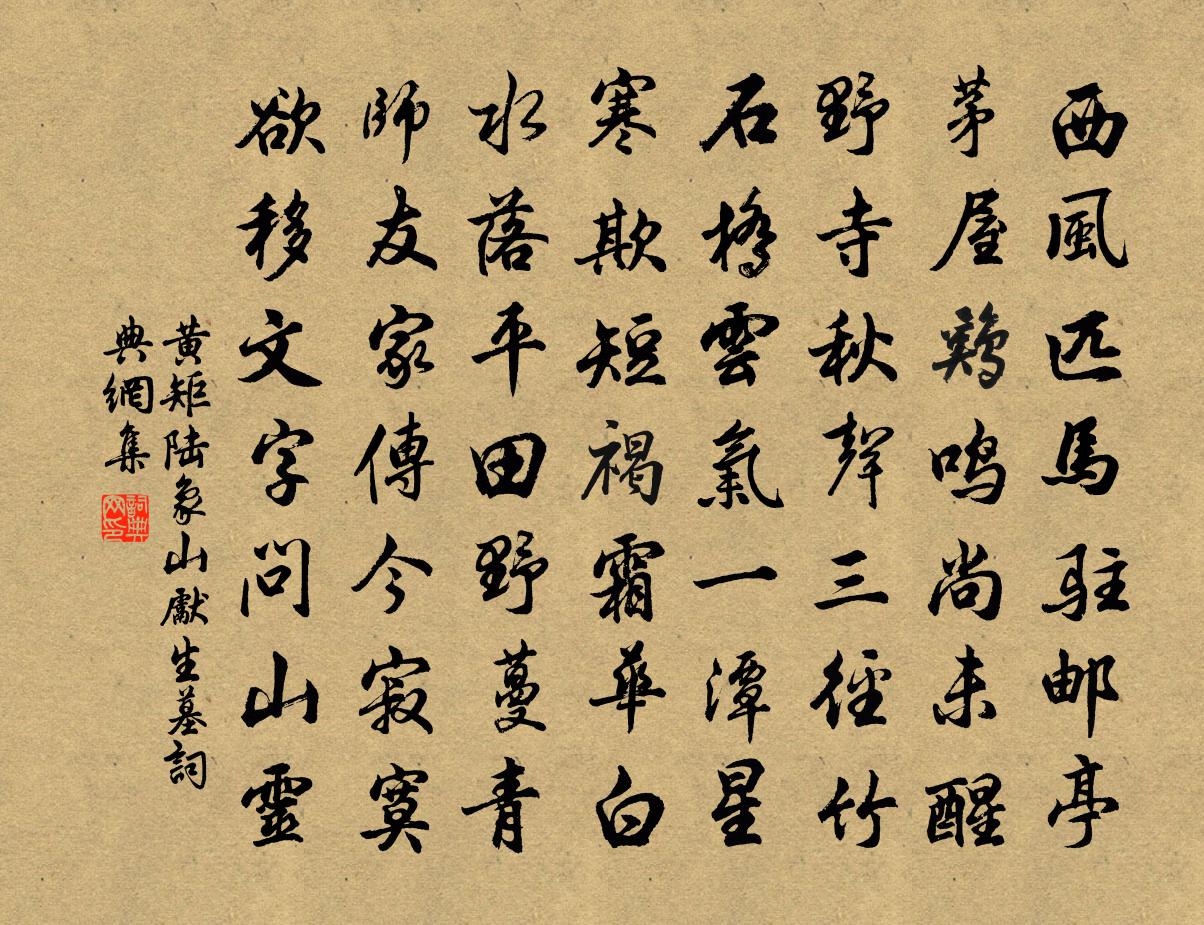 西風匹馬駐邮亭
茅屋鷄鳴尚未醒
野寺秋聲三徑竹
石橋雲氣一潭星
寒欺短褐霜華白
水落平田野蔓青
師友家傳今寂寞
欲移文字問山靈
黄矩陆象山獻生墓詞
典網集
詞典网印